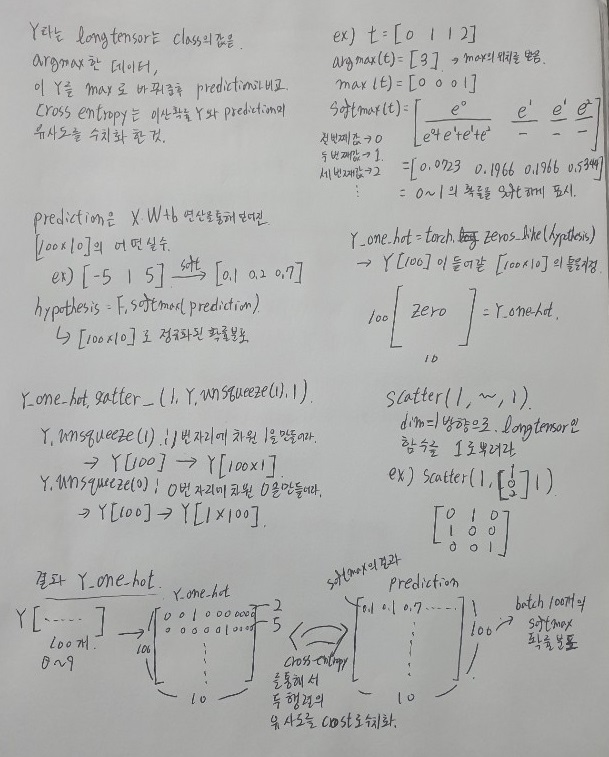 Y라는 long tensor는 class의 값을
argmax한 데이터,
이 Y를 max로 바꿔준후 prediction과 비교.
Cross entropy는 이산확률 Y와 prediction의
유사도를 수치화 한 것.
ex) t = [0 1 1 2]
argmax(t) = [3] → max의 위치를 받음.
max(t) = [0 0 0 1]
Softmax(t) = [ e⁰ / e⁰+e¹+e¹+e² e¹/– e¹/– e²/– ]
첫번째값 → 0
두번째값 → 1.
세번째값 → 2
⋮
= [0.0723 0.1966 0.1966 0.5344]
= 0~1의 확률을 Soft하게 표시.
prediction은 X.W+b 연산을 통해 얻어진
[100×10]의 어떤 실수.
ex) [-5 1 5] soft→ [0.1 0.2 0.7]
hypothesis = F.softmax(prediction)
↳ [100×10]로 정규화된 확률분포
Y_one_hot = torch. zeros_like(hypothesis)
→ Y[100]이 들어갈 [100×10]의 틀을 지정
100 [ zero ] = Y_one_hot.
10
Y_one_hot.scatter_(1, Y.unsqueeze(1), 1)
Y.unsqueeze(1) ; 1번자리에 차원 1을 만들어라.
→ Y[100] → Y[100×1]
Y.unsqueeze(0) ; 0번자리에 차원 0을 만들어라.
→ Y[100] → Y[1×100]
scatter(1, ~, 1)
dim=1 방향으로. long tensor인
함수를 1로 뿌려라
ex) scatter(1, [1 0 2] 1)
[0 1 0
1 0 0
0 0 1]
결과 Y_one_hot.
Y[.....]
100개.
0~9
Y_one_hot
0 0 1 0 0 0 0 0 0 0 2
0 0 0 0 0 1 0 0 0 0 5
100
10
cross-entropy
를 통해서
두 행렬의
유사도를 cost로 수치화.
softmax의 결과
prediction
0.1 0.1 0.7 ......
1
100
10
→ batch 100개의
softmax
확률분포